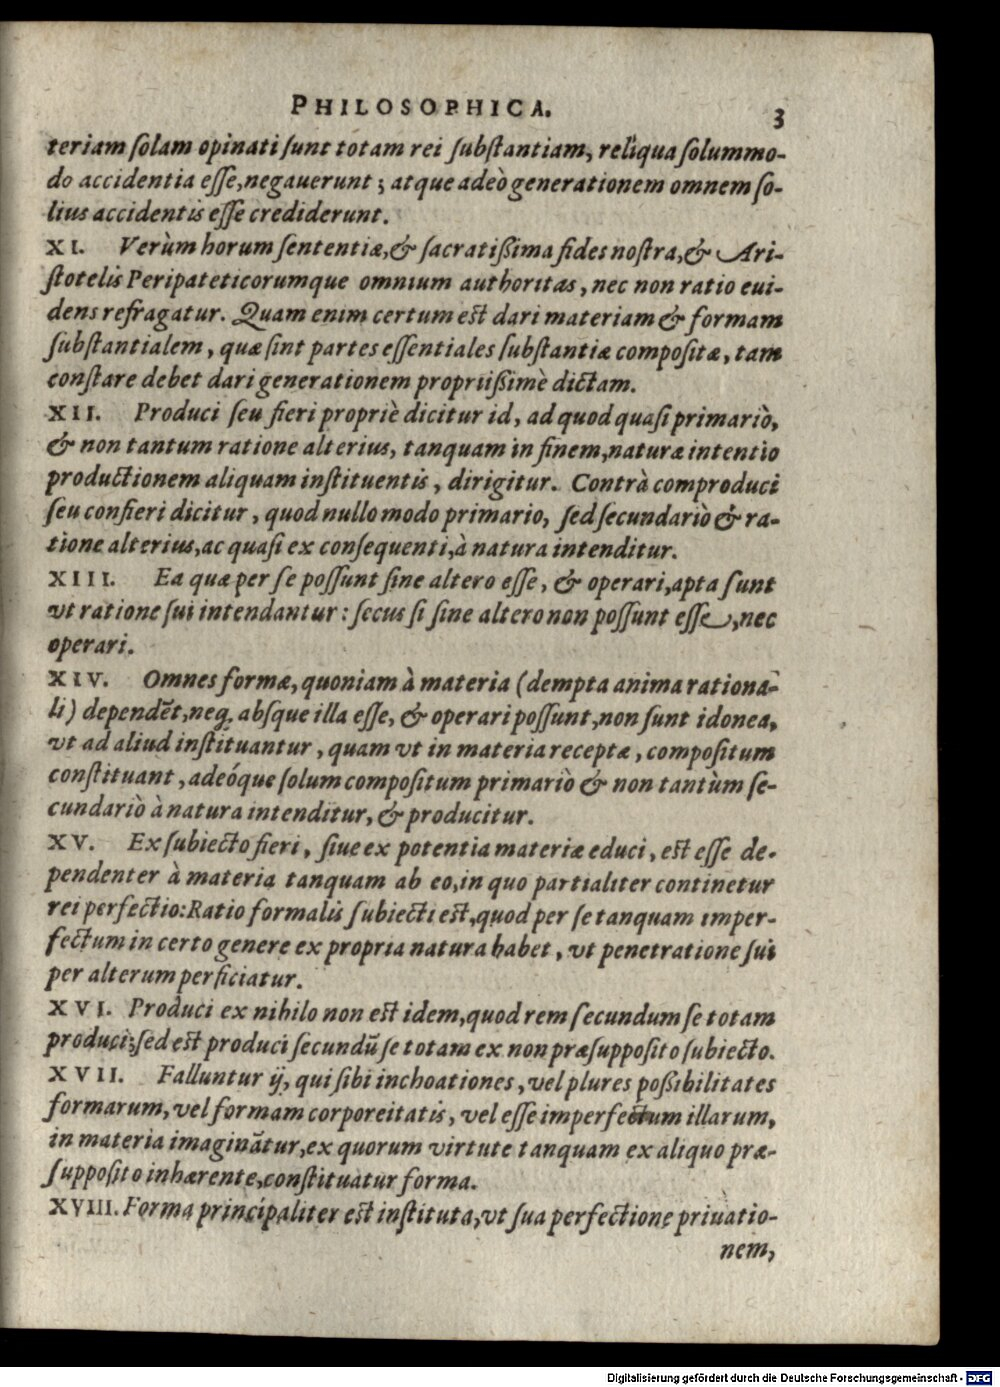 PHILOSOPHICA. 3
teriam ſolam opinati ſunt totam rei ſubſtantiam, reliqua ſolummo-
do accidentia eſſe, negauerunt; atque adeò generationem omnem ſo-
lius accidentis eſſe crediderunt.
XI. Verùm horum ſententiæ, & ſacratiſſima fides noſtra, & Ari-
ſtotelis Peripateticorumque omnium authoritas, nec non ratio eui-
dens refragatur. Quam enim certum eſt dari materiam & formam
ſubſtantialem, quæ ſint partes eſſentiales ſubſtantiæ compoſitæ, tam
conſtare debet dari generationem propriiſſimè dictam.
XII. Produci ſeu fieri propriè dicitur id, ad quod quaſi primariò,
& non tantum ratione alterius, tanquam in finem, naturæ intentio
productionem aliquam inſtituentis, dirigitur. Contrà comproduci
ſeu confieri dicitur, quod nullo modo primario, ſed ſecundariò & ra-
tione alterius, ac quaſi ex conſequenti, à natura intenditur.
XIII. Ea quæ per ſe poſſunt ſine altero eſſe, & operari, apta ſunt
vt ratione ſui intendantur: ſecus ſi ſine altero non poſſunt eſſe, nec
operari.
XIV. Omnes formæ, quoniam à materia (dempta anima rationa-
li) dependẽt, neq; abſque illa eſſe, & operari poſſunt, non ſunt idoneæ,
vt ad aliud inſtituantur, quam vt in materia receptæ, compoſitum
conſtituant, adeóque ſolum compoſitum primariò & non tantùm ſe-
cundariò à natura intenditur, & producitur.
XV. Ex ſubiecto fieri, ſiue ex potentia materiæ educi, eſt eſſe de-
pendenter à materia tanquam ab eo, in quo partialiter continetur
rei perfectio: Ratio formalis ſubiecti eſt, quod per ſe tanquam imper-
fectum in certo genere ex propria natura habet, vt penetratione ſui
per alterum perficiatur.
XVI. Produci ex nihilo non eſt idem, quod rem ſecundum ſe totam
produci; ſed eſt produci ſecundũ ſe totam ex non præſuppoſito ſubiecto.
XVII. Falluntur ij, qui ſibi inchoationes, vel plures poſſibilitates
formarum, vel formam corporeitatis, vel eſſe imperfectum illarum,
in materia imaginãtur, ex quorum virtute tanquam ex aliquo præ-
ſuppoſito inhærente, conſtituatur forma.
XVIII. Forma principaliter eſt inſtituta, vt ſua perfectione priuatio-
nem,
Digitalisierung gefördert durch die Deutsche Forschungsgemeinschaft - DFG